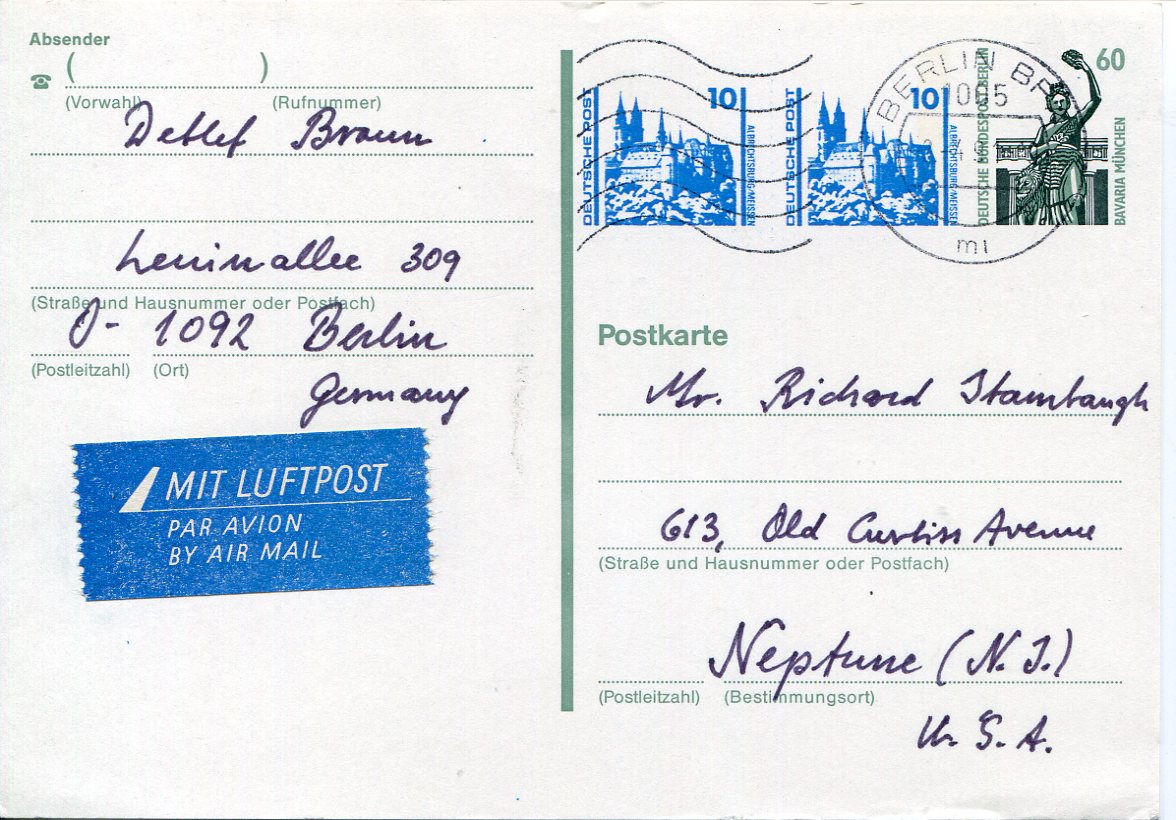 Absender
( )
(Vorwahl) (Rufnummer)
Detlef Braun
Leninallee 309
(Straße und Hausnummer oder Postfach)
O- 1092 Berlin
(Postleitzahl) (Ort)
Germany
MIT LUFTPOST
PAR AVION
BY AIR MAIL
DEUTSCHE POST
10
ALBRECHTSBURG/MEISSEN
DEUTSCHE POST
10
ALBRECHTSBURG/MEISSEN
BERLIN
mi
DEUTSCHE BUNDESPOST BERLIN
60
BAVARIA MÜNCHEN
Postkarte
Mr. Richard Stambaugh
613, Old Curliss Avenue
(Straße und Hausnummer oder Postfach)
Neptune (N.J.)
(Postleitzahl) (Bestimmungsort)
U.S.A.